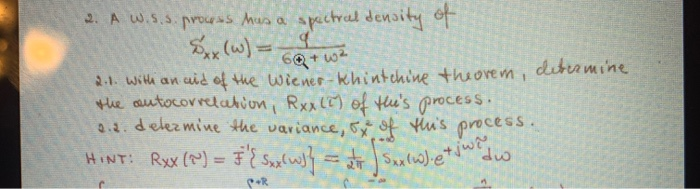 2. A W.S.S. process has a spectral density of
S_xx(ω) = 9 / (6@ + ω²)
2.1. With an aid of the Wiener-Khintchine theorem, determine
the autocorrelation, Rxx(τ) of this process.
2.2. determine the variance, σx² of this process.
HINT: Rxx(τ) = F⁻¹{Sxx(ω)} = 1/2π ∫_{-∞}^{+∞} Sxx(ω)·e^{+jωτ} dω